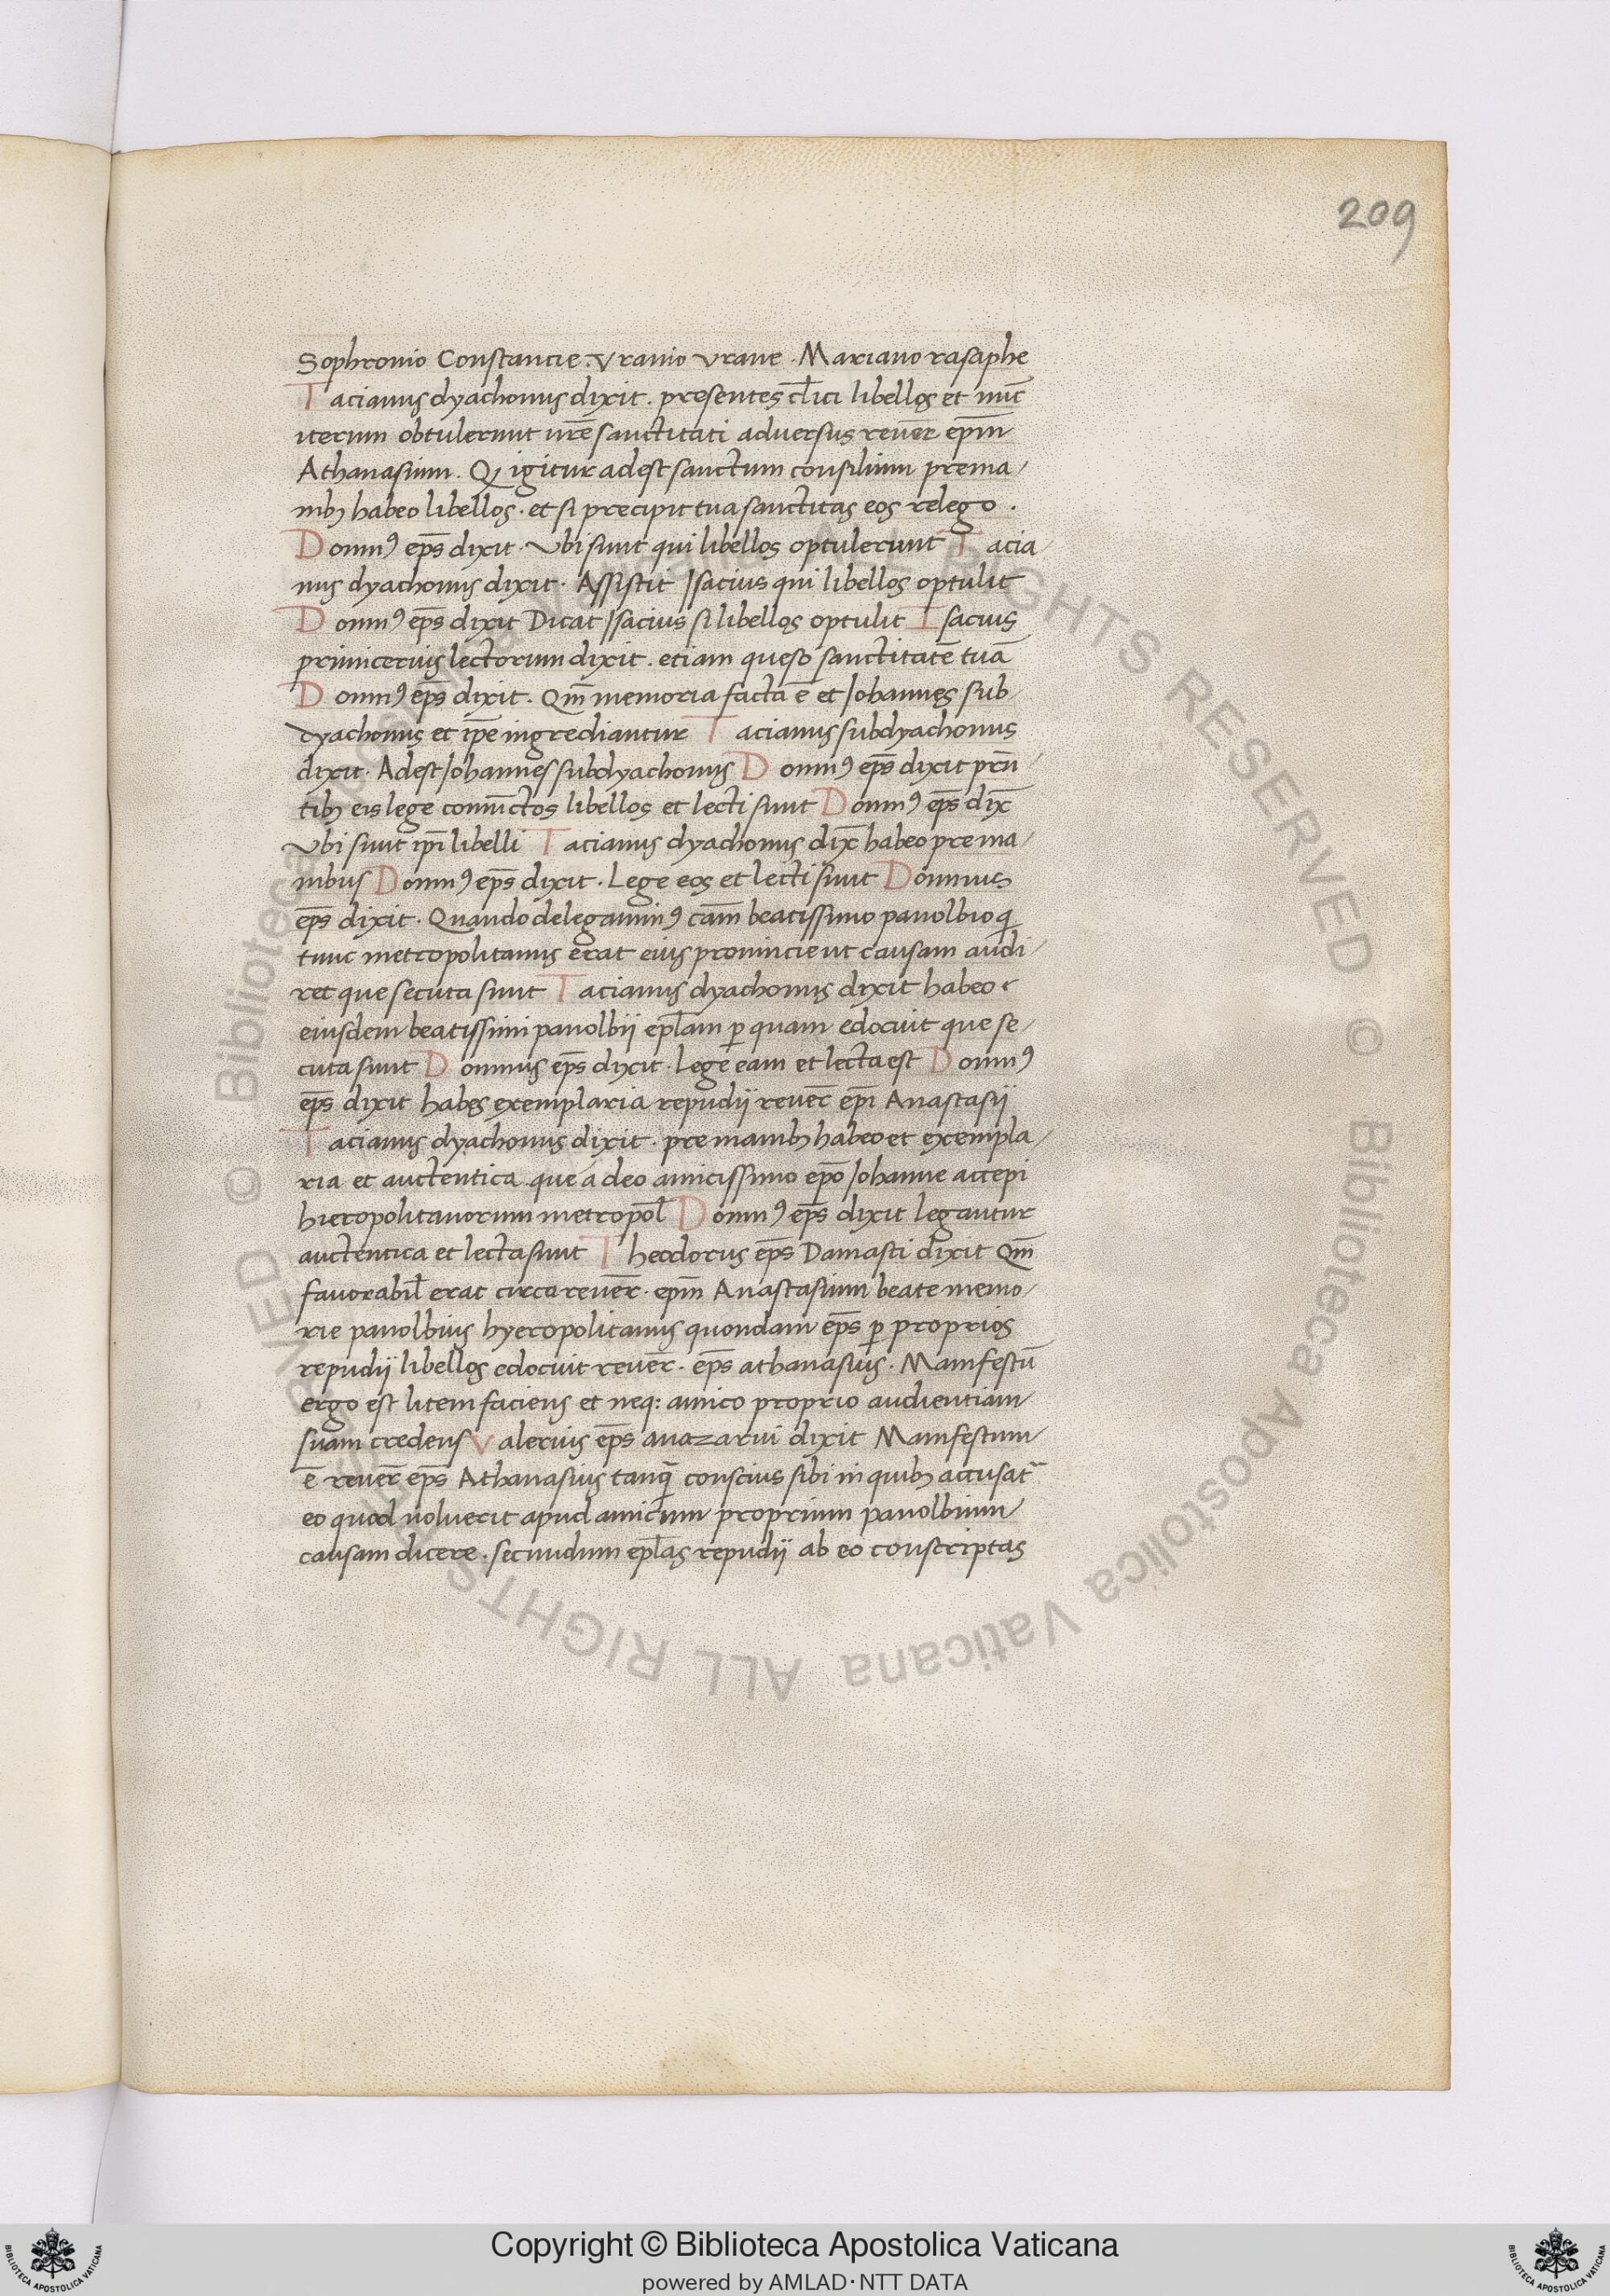 209
Sophronio Constancie . Vranio vrane . Mariano rasaphe
Tacianus dyachonus dixit . presentes cl̅ici libellos et nu̅c
iterum obtulerunt ur̅e sanctitati adversus reuer̅ ep̅m
Athanasium . Q̨ igitur adest sanctum consilium pre ma/
nibꝫ habeo libellos . et si precipit tua sanctitas eos relego .
Domnꝰ ep̅s dixit . Vbi sunt qui libellos optulerunt Tacia/
nus dyachonus dixit . Assistit Isacius qui libellos optulit
Domnꝰ ep̅s dixit Dicat Isacius si libellos optulit Isacius
primicerius lectorum dixit . etiam queso sanctitate̅ tua̅
Domnꝰ ep̅s dixit . Qm̅ memoria facta e̅ et Johannes sub/
dyachonus et ip̅e ingrediantur Tacianus subdyachonus
dixit . Adest Johannes subdyachonus Domnꝰ ep̅s dixit prn̅/
tibꝫ eis lege coniu̅ctos libellos et lecti sunt Domnꝰ ep̅s dix̅
Vbi sunt ip̅i libelli Tacianus dyachonus dix̅ habeo pre ma/
nibus Domnꝰ ep̅s dixit . Lege eos et lecti sunt Domnus
ep̅s dixit . Quando delegauimꝰ cam̅ beatissimo panolbio q̨
tunc metropolitanus erat eius prouincie ut causam audi/
ret que secuta sunt Tacianus dyachonus dixit habeo
eiusdem beatissimi panolbii epl̅am ꝑ quam edocuit que se/
cuta sunt Domnus ep̅s dixit . Lege eam et lecta est Domnꝰ
ep̅s dixit habes exemplaria repudij reuer̅ ep̅i Anastasij
Tacianus dyachonus dixit . pre manibꝫ habeo et exempla/
ria et auctentica que a deo amicissimo ep̅o Johanne accepi
hieropolitanorum metropol̅ Domnꝰ ep̅s dixit legantur
auctentica et lecta sunt Theodorus ep̅s Damasci dixit Qm̅
fauorabil̅ erat circa reuer̅ . ep̅m Anastasium beate memo/
rie panolbius hyeropolitanus quondam ep̅s ꝑ proprios
repudij libellos edocuit reuer̅ . ep̅s athanasius . Manifestu̅
ergo est litem faciens et neq: amico proprio audientiam
suam credens Valerius ep̅s anazarui dixit Manifestum
e̅ reuer̅ ep̅s Athanasius tanq̅ conscius sibi in quibꝫ accusat᷑
eo quod noluerit apud amicum proprium panolbium
causam dicere . secundum epl̅as repudij ab eo conscriptas
© Biblioteca Apostolica Vaticana ALL RIGHTS RESERVED © Biblioteca Apostolica Vaticana ALL RIGHTS RESERVED
Copyright © Biblioteca Apostolica Vaticana
powered by AMLAD·NTT DATA
BIBLIOTECA APOSTOLICA VATICANA
BIBLIOTECA APOSTOLICA VATICANA